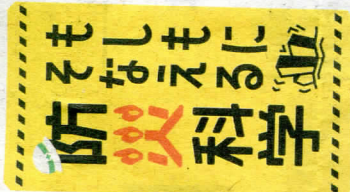 もしもに
そなえる
防災科学